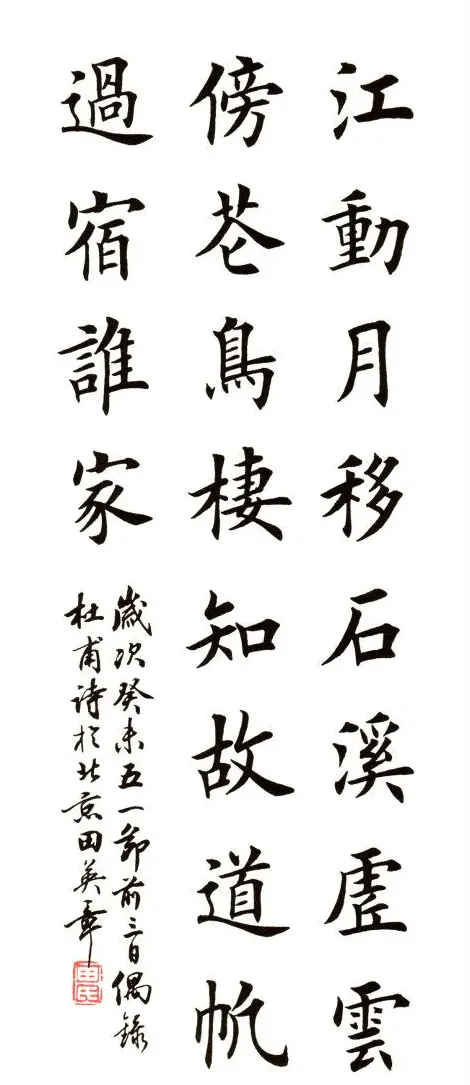 江動月移石溪虛雲
傍花鳥棲知故道帆
過宿誰家
歲次癸未五一節前三日偶錄
杜甫诗於北京田英章
田氏